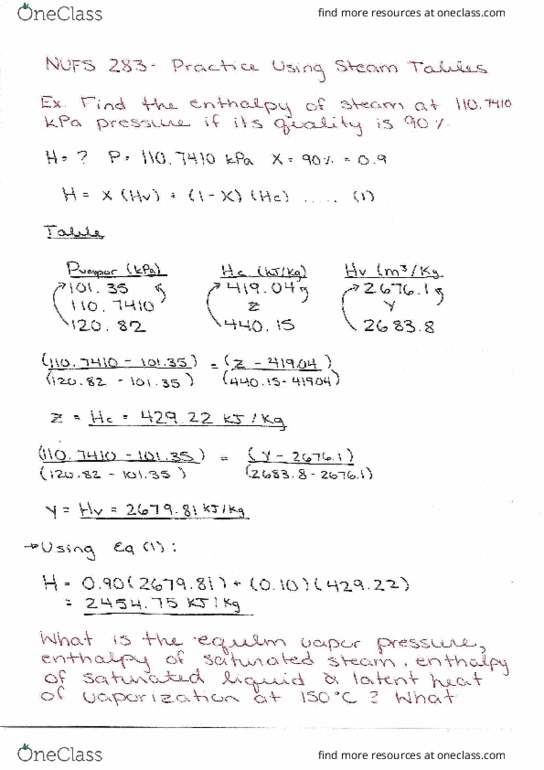 OneClass find more resources at oneclass.com
NUFS 283- Practice Using Steam Tables
Ex. Find the enthalpy of steam at 110.7410
kPa pressure if its quality is 90%.
H = ? P = 110.7410 kPa X = 90% = 0.9
H = X (Hv) + (1-X) (Hc) ..... (1)
Table
Pvapor (kPa) Hc (kJ/kg) Hv (m³/Kg
101.35 419.04 2676.1
110.7410 Z Y
120.82 440.15 2683.8
(110.7410 - 101.35) = (Z - 419.04)
(120.82 - 101.35) (440.15-419.04)
Z = Hc = 429.22 KJ/Kg
(110.7410 - 101.35) = (Y - 2676.1)
(120.82 - 101.35) (2683.8-2676.1)
Y = Hv = 2679.81 KJ/Kg
→Using Eq (1):
H = 0.90(2679.81) + (0.10)(429.22)
= 2454.75 KJ/Kg
What is the equilm vapor pressure,
enthalpy of saturated steam, enthalpy
of saturated liquid & latent heat
of vaporization at 150°C? What
OneClass find more resources at oneclass.com